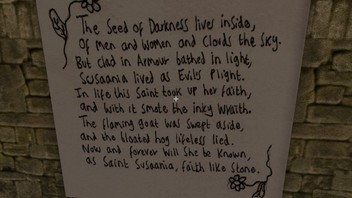 The Seed of Darkness lives inside,
Of men and Women and Clouds the Sky.
But clad in Armour bathed in light,
Susaania lived as Evils Plight.
In life this Saint took up her faith,
and with it smote the inky Wraith.
The flaming goat was swept aside,
and the bloated hog lifeless lied.
Now and forever Will She be Known,
as Saint Susaania, faith like Stone.